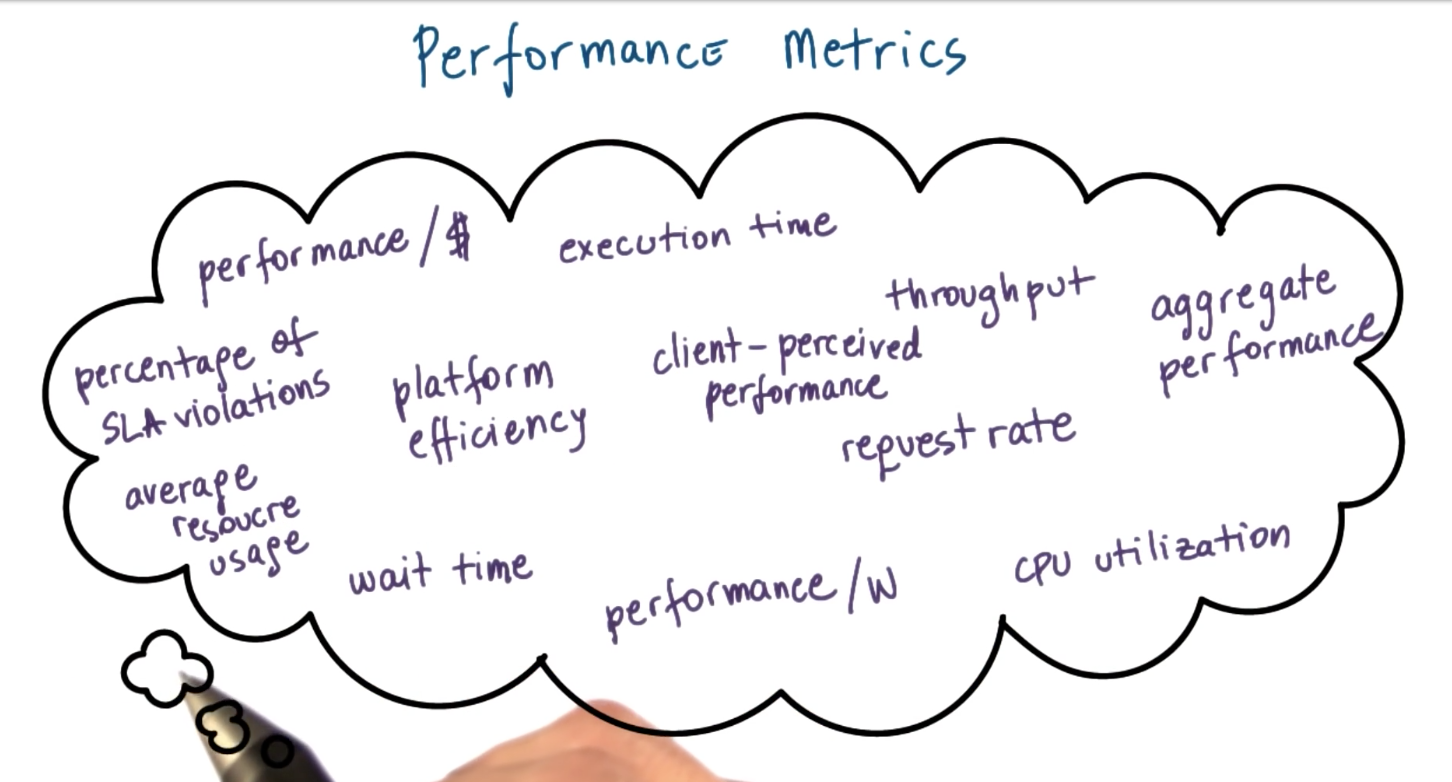 Performance Metrics
performance/$
execution time
throughput
aggregate
performance
percentage of
SLA violations
platform
efficiency
client-perceived
performance
request rate
average
resoucre
usage
wait time
performance/W
CPU utilization